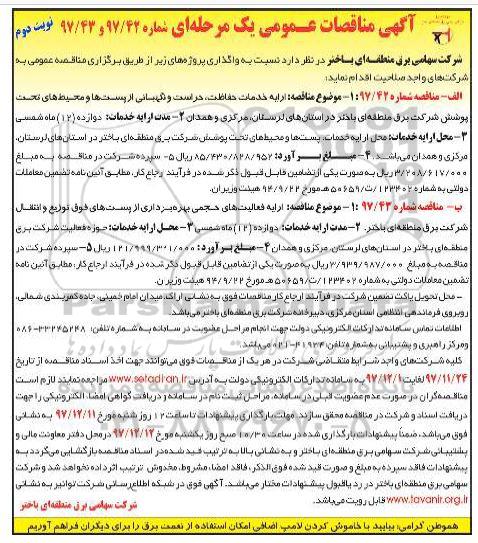 آگهی مناقصات عـمومی یک مرحله‌ای شماره ۹۷/۴۲ و ۹۷/۴۳
نوبت دوم
شرکت سهامی برق منطقه‌ای باختر در نظر دارد نسبت به واگذاری پروژه‌های زیر از طریق برگزاری مناقصه عمومی به
شرکت‌های واجد صلاحیت اقدام نماید:
الف- مناقصه شماره ۹۷/۴۲: ۱- موضوع مناقصه: ارایه خدمات حفاظت، حراست و نگهبانی از پست‌ها و محیط‌های تحت
پوشش شرکت برق منطقه‌ای باختر در استان‌های لرستان، مرکزی و همدان ۲- مدت ارایه خدمات: دوازده (۱۲) ماه شمسی
۳- محل ارایه خدمات: محل ارایه خدمات، پست‌ها و محیط‌های تحت پوشش شرکت برق منطقه‌ای باختر در استان‌های لرستان،
مرکزی و همدان می‌باشد. ۴- مبـلغ بـرآورد: ۸۵/۴۳۰/۸۲۸/۹۵۲ ریال ۵- سپرده شرکت در مناقصه به مبلغ
۳/۲۰۸/۶۱۷/۰۰۰ ریال به صورت یکی از تضامین قابل قبول ذکر شده در فرآیند ارجاع کار، مطابق آئین نامه تضمین معاملات
دولتی به شماره ۱۲۳۴۰۲/ت/۵۰۶۵۹هـ مورخ ۹۴/۹/۲۲ هیئت وزیران.
ب- مناقصه شماره ۹۷/۴۳: ۱- موضوع مناقصه: ارایه فعالیت‌های حجمی بهره‌برداری از پست‌های فوق توزیع و انتقال
شرکت برق منطقه‌ای باختر. ۲- مدت ارایه خدمات: دوازده (۱۲) ماه شمسی ۳- محل ارایه خدمات: حوزه فعالیت شرکت برق
منطقه‌ای باختر در استان‌های لرستان، مرکزی و همدان ۴- مبلغ برآورد: ۱۲۱/۹۹۹/۳۱۰/۰۰۰ ریال ۵- سپرده شرکت در
مناقصه به مبلغ ۳/۹۳۹/۹۸۷/۰۰۰ ریال به صورت یکی از تضامین قابل قبول ذکر شده در فرآیند ارجاع کار، مطابق آئین نامه
تضمین معاملات دولتی به شماره ۱۲۳۴۰۲/ت/۵۰۶۵۹هـ مورخ ۹۴/۹/۲۲ هیئت وزیران.
- محل تحویل پاکت تضمین شرکت در فرآیند ارجاع کار مناقصات فوق به نشانی اراک، میدان امام خمینی، جاده کمربندی شمالی،
روبروی فرماندهی انتظامی استان مرکزی، دبیرخانه شرکت برق منطقه‌ای باختر می‌باشد.
اطلاعات تماس سامانه تدارکات الکترونیکی دولت جهت انجام مراحل عضویت در سامانه به شماره تلفن: ۳۳۲۴۵۲۴۸-۰۸۶
و مرکز راهبری و پشتیبانی به شماره تلفن ۴۱۹۳۴-۰۲۱ می‌باشد.
کلیه شرکت‌های واجد شرایط متقاضی شرکت در هر یک از مناقصات فوق می‌توانند جهت اخذ اسناد مناقصه از تاریخ
۹۷/۱۱/۲۴ لغایت ۹۷/۱۲/۱ به سامانه تدارکات الکترونیکی دولت به آدرس www.setadiran.ir مراجعه نمایند لازم است
مناقصه‌گران در صورت عدم عضویت قبلی در سامانه، مراحل ثبت نام در سامانه و دریافت گواهی امضا، الکترونیکی را جهت
دریافت اسناد و شرکت در مناقصه محقق سازند. مهلت بارگذاری پیشنهادات تا ساعت ۱۲ روز شنبه مورخ ۹۷/۱۲/۱۱ به نشانی
فوق می‌باشد، ضمناً پیشنهادات بارگذاری شده در ساعت ۱۰/۳۰ صبح روز یکشنبه مورخ ۹۷/۱۲/۱۲ در محل دفتر معاونت مالی و
پشتیبانی شرکت سهامی برق منطقه‌ای باختر و به نشانی بالا به ترتیب قید شده در اسناد مناقصه بازگشایی می‌گردد به
پیشنهادات فاقد سپرده به مبلغ و صورت قید شده فوق الذکر، فاقد امضا، مشروط، مخدوش ترتیب اثر داده نخواهد شد و شرکت
سهامی برق منطقه‌ای باختر در رد یا قبول پیشنهادات مختار می‌باشد. آگهی فوق در شبکه اطلاع‌رسانی شرکت توانیر به نشانی
www.tavanir.org.ir قابل رویت می‌باشد.
شرکت سهامی برق منطقه‌ای باختر
هموطن گرامی: بیایید با خاموش کردن لامپ اضافی امکان استفاده از نعمت برق را برای دیگران فراهم آوریم